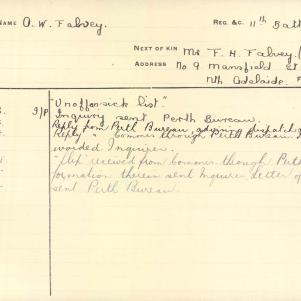 NAME O. W. Falvey. REG. &C. 11th Batt
NEXT OF KIN Mr F. H. Falvey.
ADDRESS No 9 Mansfield St
Nth Adelaide.
3/P "Unoff on sick list".
Inquiry sent Perth Bureau.
Reply from Perth Bureau, advising dispatch
Reply " Commr through Perth Bureau
worded Inquirer.
received from Commr. through Perth
formation therein sent Inquirer. Letter of
sent Perth Bureau.